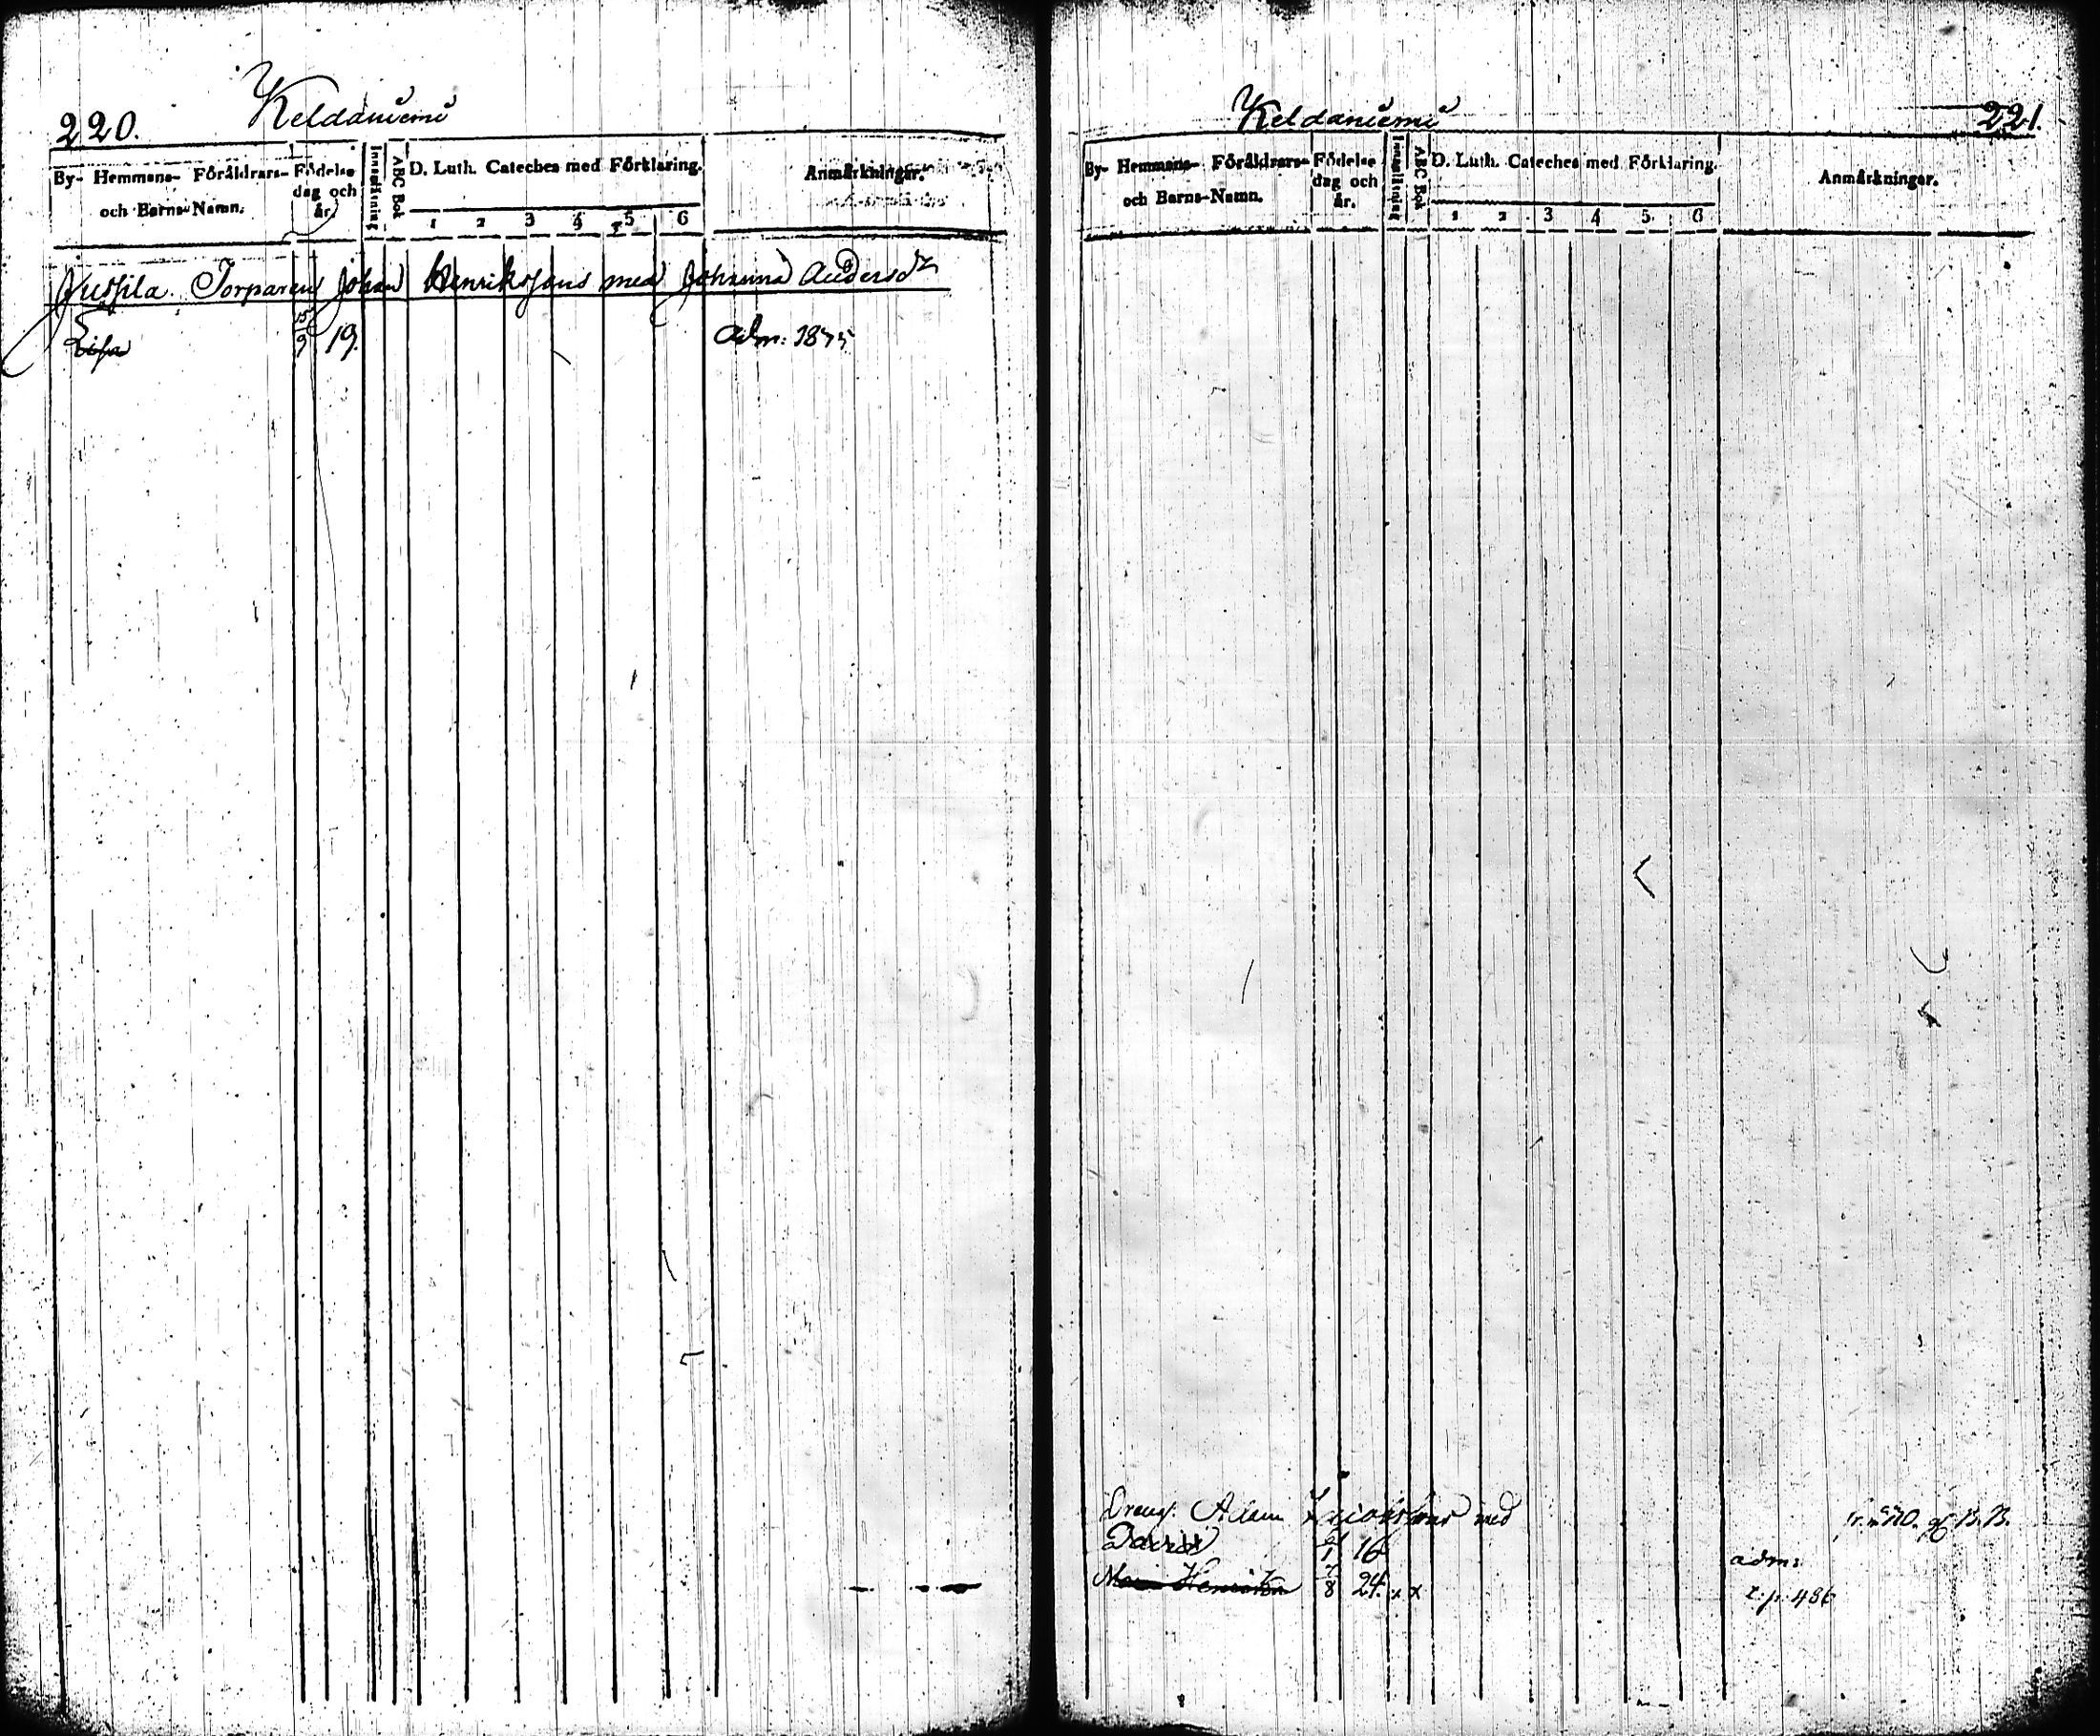 220.
Keldaniemi
By- Hemmans- Föräldrars-
och Barns-Namn.
Födelse
dag och
år.
Innanläsning
ABC Bok
D. Luth. Cateches med Förklaring.
1 2 3 4 5 6
Anmärkningar.
Jussila. Torparen Johan Henrikssons med Johanna Andersdr
Lisa 19. adm: 1835
Keldaniemi
221.
By- Hemmans- Föräldrars-
och Barns-Namn.
Födelse
dag och
år.
Innanläsning
ABC Bok
D. Luth. Cateches med Förklaring.
1 2 3 4 5. 6
Anmärkningar.
Dreng. Adam med
David 16 adm:
Maria Henrika 7/8 24. x x t. p. 486